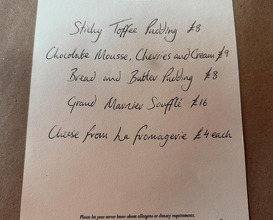 Sticky Toffee Pudding £8
Chocolate Mousse, Cherries and Cream £9
Bread and Butter Pudding £8
Grand Marnier Soufflé £16
Cheese from La fromagerie £4 each
Please let your server know about allergens or dietary requirements.